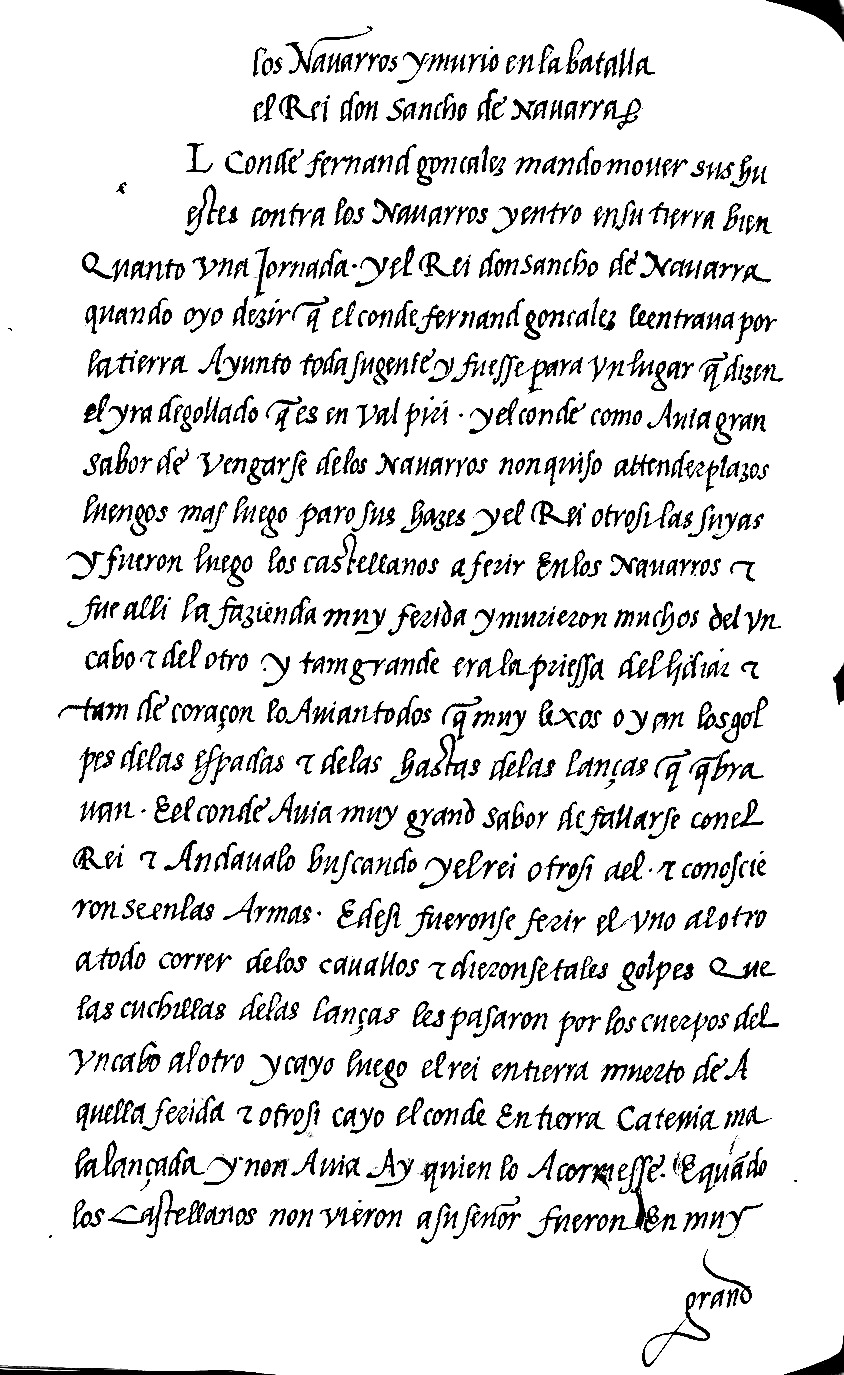 los Nauarros y murio en la batalla
el Rei don Sancho de Nauarra
L Conde fernand goncalez mando mouer sus hu
e
estes contra los Nauarros y entro en su tierra bien
Quanto vna Jornada. y el Rei don sancho de Nauarra
quando oyo dezir q̃ el conde fernand goncalez le entraua por
la tierra Ayunto toda su gente y fuesse para vn lugar q̃ dizen
el yra degollado q̃ es en val piri. y el conde como Auia gran
sabor de vengarse delos Nauarros non quiso attender plazos
luengos mas luego paro sus hazes y el Rei otrosi las suyas
y fueron luego los castellanos a ferir En los Nauarros ⁊
fue alli la fazienda muy ferida y murieron muchos del vn
cabo ⁊ del otro y tam grande era la priessa del lidiar ⁊
tam de coraçon lo Auian todos q̃ muy lexos oyan los gol
pes delas espadas ⁊ delas hastas delas lanças q̃ q̃bra
uan. E el conde Auia muy grand sabor de fallarse con el
Rei ⁊ Andaualo buscando y el rei otrosi a el. ⁊ conoscie
ronse en las Armas. E desi fueronse ferir el vno al otro
a todo correr delos cauallos ⁊ dieronse tales golpes Que
las cuchillas delas lanças les pasaron por los cuerpos del
vn cabo al otro y cayo luego el rei en tierra muerto de A
quella ferida ⁊ otrosi cayo el conde En tierra Ca tenia ma
la lançada y non Auia Ay quien lo Acorriesse. E quãdo
los Castellanos non vieron a su señor fueron En muy
grand